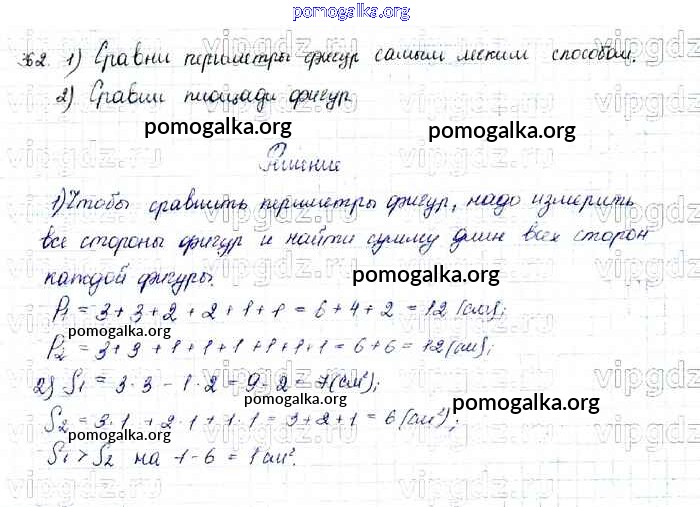 pomogalka.org
№62. 1) Сравни периметры фигур самым легким способом.
2) Сравни площади фигур
pomogalka.org pomogalka.org
Решение
1) Чтобы сравнить периметры фигур, надо измерить
все стороны фигур и найти сумму длин всех сторон
каждой фигуры.
pomogalka.org
P₁ = 3 + 3 + 2 + 2 + 1 + 1 = 6 + 4 + 2 = 12 (см);
pomogalka.org
P₂ = 3 + 3 + 1 + 1 + 1 + 1 + 1 + 1 = 6 + 6 = 12 (см);
2) S₁ = 3 · 3 - 1 · 2 = 9 - 2 = 7 (см²);
pomogalka.org
S₂ = 3 · 1 + 2 · 1 + 1 · 1 = 3 + 2 + 1 = 6 (см²);
pomogalka.org
S₁ > S₂ на 7 - 6 = 1 см².
pomogalka.org